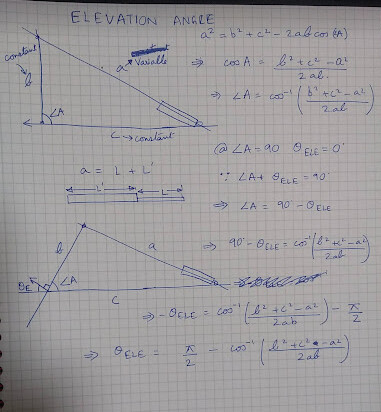 ELEVATION ANGLE
a² = b² + c² - 2ab cos(A)
constant
b
a → Variable
∠A
c → constant
⇒ cosA = b² + c² - a² / 2ab
⇒ ∠A = cos⁻¹ ( b² + c² - a² / 2ab )
@ ∠A = 90 θELE = 0°
∵ ∠A + θELE = 90°
⇒ ∠A = 90 - θELE
a = L + L'
L' L
b
a
θE
∠A
c
⇒ 90° - θELE = cos⁻¹ ( b² + c² - a² / 2ab )
⇒ - θELE = cos⁻¹ ( b² + c² - a² / 2ab ) - π/2
⇒ θELE = π/2 - cos⁻¹ ( b² + c² - a² / 2ab )